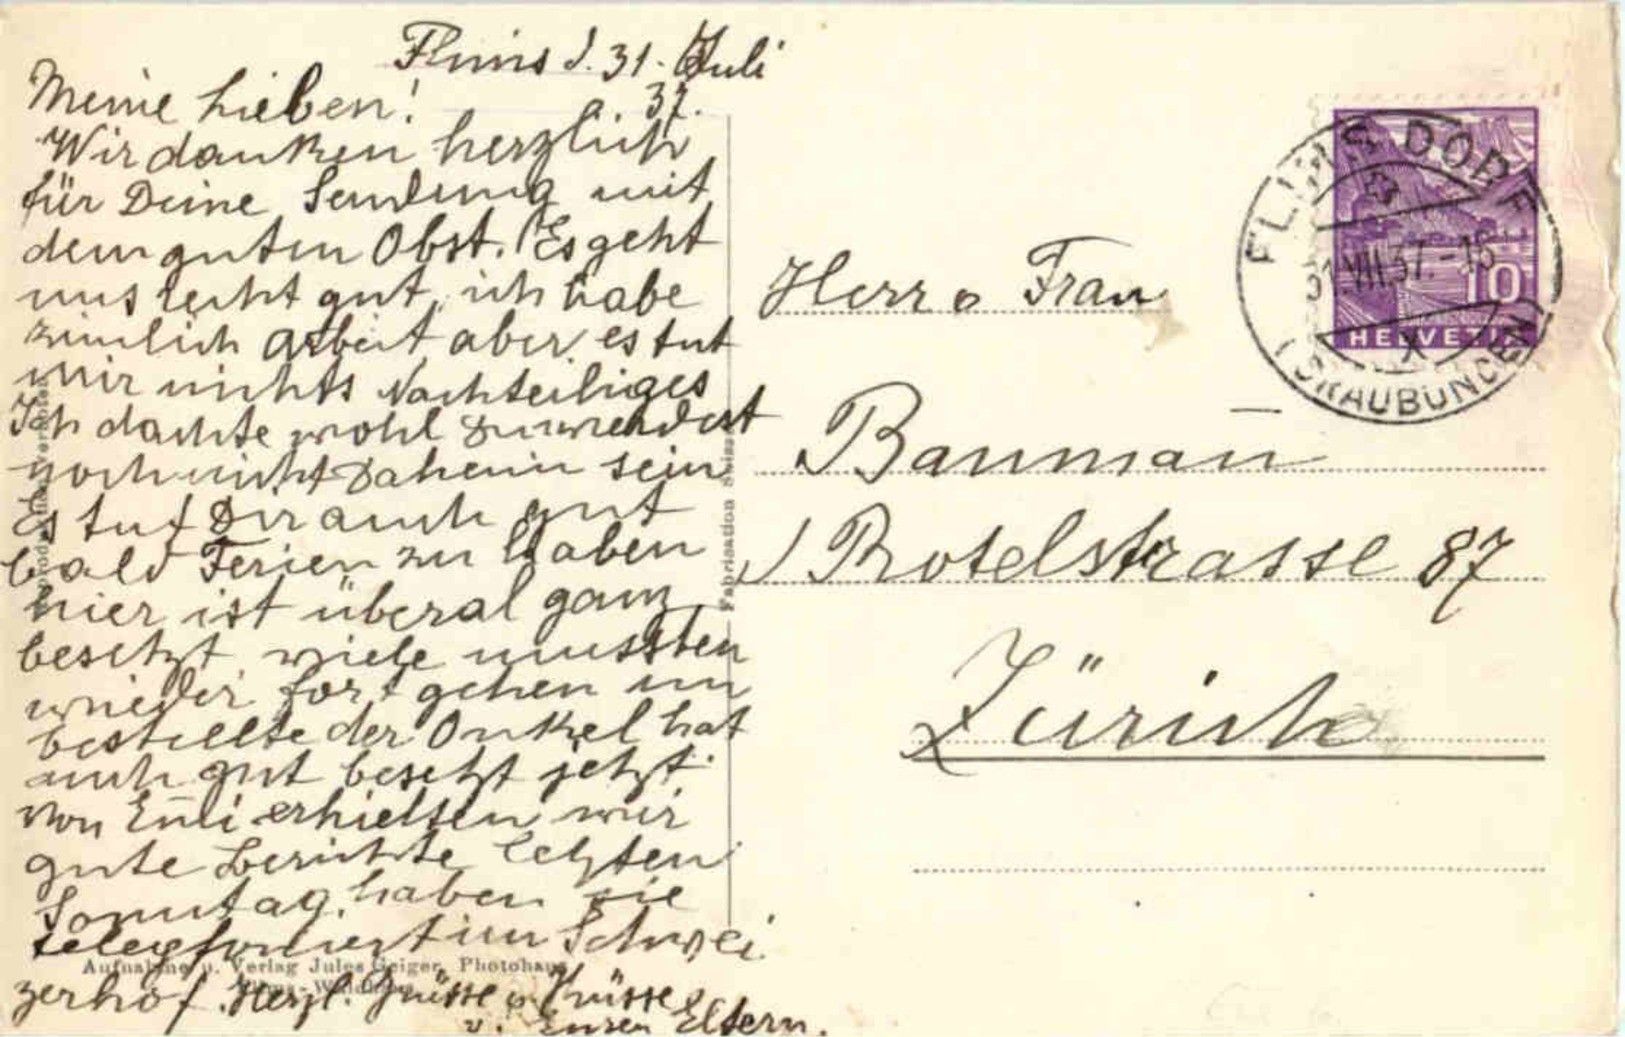 Flims d. 31. Juli
37.
Meine Lieben!
Wir danken herzlich
für Deine Sendung mit
dem guten Obst. Es geht
uns recht gut, ich habe
zimlich Arbeit aber es tut
mir nichts Nachteiliges
Ich dachte wohl Du werdest
noch nicht Daheim sein
Es tut Dir auch gut
bald Ferien zu haben
hier ist überal ganz
besetzt, viele mussten
wieder fort gehen un
bestellte der Onkel hat
auch gut besetzt jetzt.
Von Emli erhielten wir
gute Berichte letzten
Sonntag, haben sie
telegfoniert im Schwei
zerhof. Herzl. Grüsse u Küsse
v. Euren Eltern.
Herr u Frau
Bauman
Rotelstrasse 87
Zürich
FLIMS DORF
31.VII.37.-16
(GRAUBÜNDEN)
X
10
HELVETIA
Fabrication Suisse
Aufnahme u. Verlag Jules Geiger, Photohaus
Flims-Waldhaus